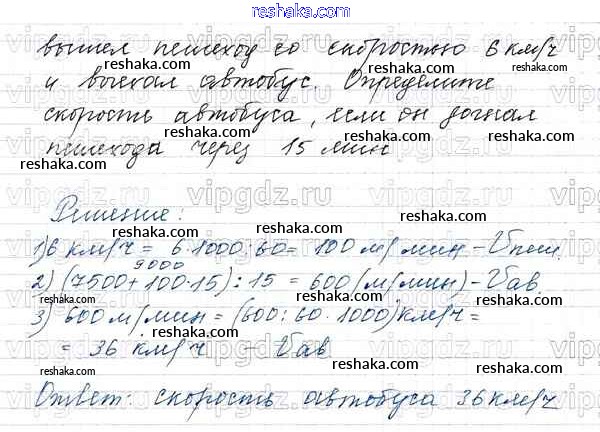 reshaka.com
вышел пешеход со скоростью 6 км/ч
reshaka.com reshaka.com
и выехал автобус. Определите
reshaka.com
скорость автобуса, если он догнал
reshaka.com reshaka.com
пешехода через 15 мин
reshaka.com
vipgdz.ru vipgdz.ru
reshaka.com
Решение:
reshaka.com
1) 6 км/ч = 6·1000:60 = 100 м/мин – Vпеш.
9000
2) (7500 + 100·15) : 15 = 600 (м/мин) – Vав
reshaka.com
3) 600 м/мин = (600:60·1000) км/ч =
reshaka.com reshaka.com
= 36 км/ч – Vав
reshaka.com
Ответ: скорость автобуса 36 км/ч
reshaka.com reshaka.com